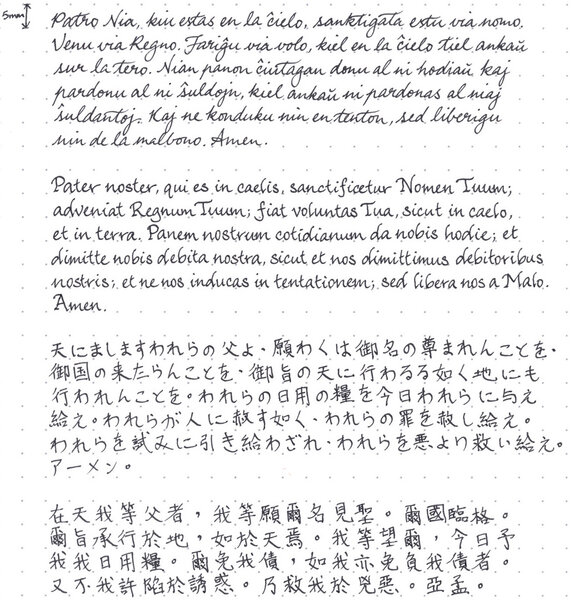 5mm
Patro Nia, kiu estas en la ĉielo, sanktigata estu via nomo.
Venu via Regno. Fariĝu via volo, kiel en la ĉielo tiel ankaŭ
sur la tero. Nian panon ĉiutagan donu al ni hodiaŭ kaj
pardonu al ni ŝuldojn, kiel ankaŭ ni pardonas al niaj
ŝuldantoj. Kaj ne konduku nin en tenton, sed liberigu
nin de la malbono. Amen.
Pater noster, qui es in caelis, sanctificetur Nomen Tuum;
adveniat Regnum Tuum; fiat voluntas Tua, sicut in caelo,
et in terra. Panem nostrum cotidianum da nobis hodie; et
dimitte nobis debita nostra, sicut et nos dimittimus debitoribus
nostris; et ne nos inducas in tentationem; sed libera nos a Malo.
Amen.
天にましますわれらの父よ、願わくは御名の尊まれんことを、
御国の来たらんことを、御旨の天に行わるる如く地にも
行われんことを。われらの日用の糧を今日われらに与え
給え。われらが人に赦す如く、われらの罪を赦し給え。
われらを試みに引き給わざれ、われらを悪より救い給え。
アーメン。
在天我等父者,我等願爾名見聖。爾國臨格。
爾旨承行於地,如於天焉。我等望爾,今日予
我我日用糧。爾免我債,如我亦免負我債者。
又不我許陷於誘惑。乃救我於兇惡。亞孟。